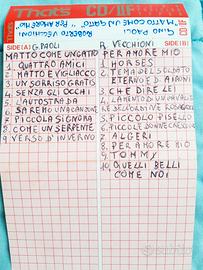 That's CD/IIF
GINO PAOLI
"MATTO COME UN GATTO"
ROBERTO VECCHIONI
"PER AMORE MIO"
SIDE(A) G. PAOLI
MATTO COME UN GATTO
1 QUATTRO AMICI
2 MATTO E VIGLIACCO
3 UN SORRISO GRATIS
4 SENZA GLI OCCHI
5 L'AUTOSTRADA
6 SAREMO UNA CANZONE
7 PICCOLA SIGNORA
8 COME UN SERPENTE
9 VERSO D'INVERNO
R. VECCHIONI SIDE(B)
PER AMORE MIO
1 HORSES
2 TEMA DEL SOLDATO
ETERNO E D AIRONI
3 CHE DIRE LEI
4 LAMENTO DI UN CAVALIE
RE DELL'
5 PICCOLO PISELLO
6 PICCOLE DONNE
7 ALGERI
8 PER AMORE MIO
9 TOMMY
10 QUELLI BELLI
COME NOI